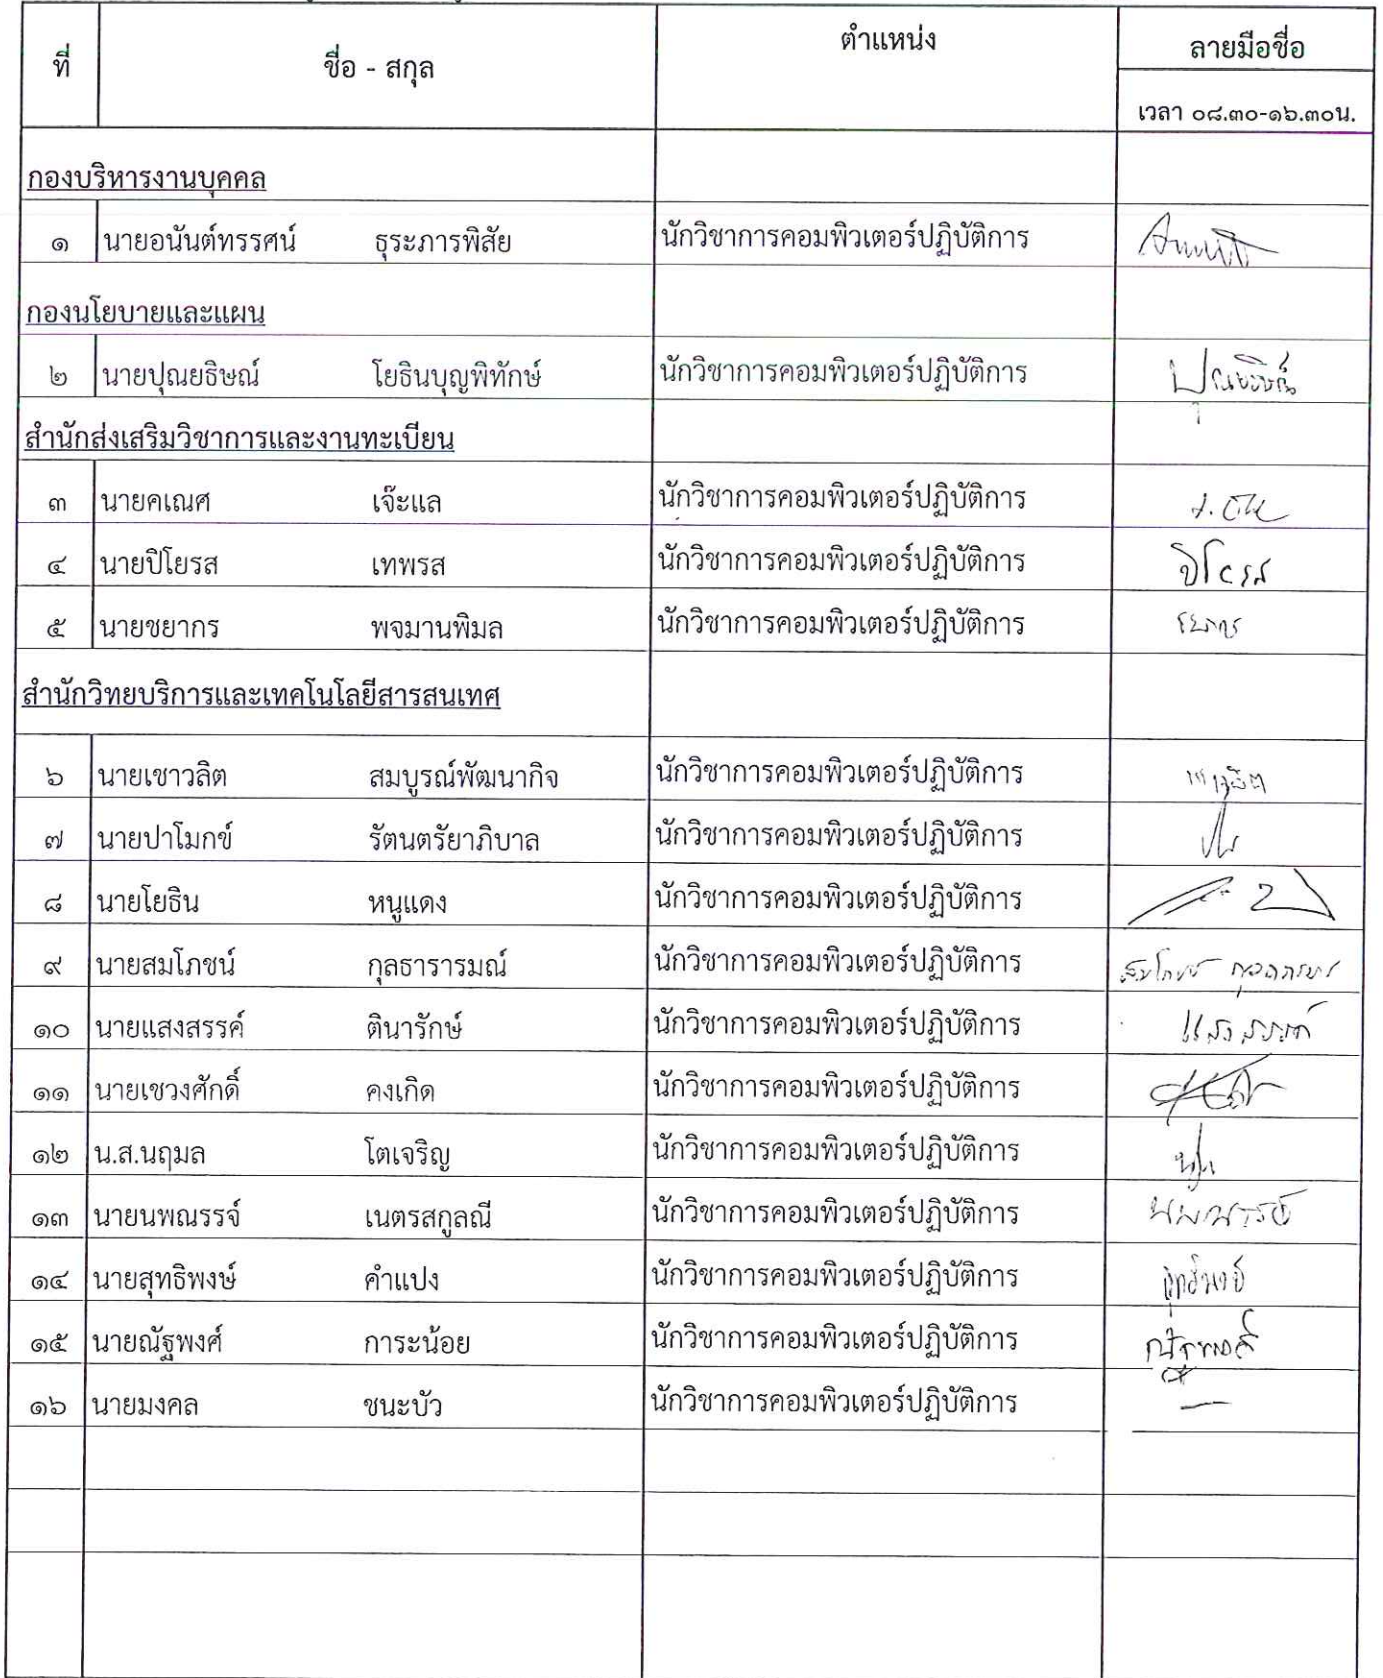 ที่ ชื่อ - สกุล ตำแหน่ง ลายมือชื่อ
เวลา ๐๘.๓๐-๑๖.๓๐น.
กองบริหารงานบุคคล
๑ นายอนันต์ทรรศน์ ธุระภารพิสัย นักวิชาการคอมพิวเตอร์ปฏิบัติการ
กองนโยบายและแผน
๒ นายปุณยธิษณ์ โยธินบุญพิทักษ์ นักวิชาการคอมพิวเตอร์ปฏิบัติการ ปุณยธิษณ์
สำนักส่งเสริมวิชาการและงานทะเบียน
๓ นายคเณศ เจ๊ะแล นักวิชาการคอมพิวเตอร์ปฏิบัติการ
๔ นายปิโยรส เทพรส นักวิชาการคอมพิวเตอร์ปฏิบัติการ ปิโยรส
๕ นายชยากร พจมานพิมล นักวิชาการคอมพิวเตอร์ปฏิบัติการ ชยากร
สำนักวิทยบริการและเทคโนโลยีสารสนเทศ
๖ นายเชาวลิต สมบูรณ์พัฒนากิจ นักวิชาการคอมพิวเตอร์ปฏิบัติการ เชาวลิต
๗ นายปาโมกข์ รัตนตรัยาภิบาล นักวิชาการคอมพิวเตอร์ปฏิบัติการ
๘ นายโยธิน หนูแดง นักวิชาการคอมพิวเตอร์ปฏิบัติการ
๙ นายสมโภชน์ กุลธารารมณ์ นักวิชาการคอมพิวเตอร์ปฏิบัติการ สมโภชน์
๑๐ นายแสงสรรค์ ตินารักษ์ นักวิชาการคอมพิวเตอร์ปฏิบัติการ แสงสรรค์
๑๑ นายเชวงศักดิ์ คงเกิด นักวิชาการคอมพิวเตอร์ปฏิบัติการ
๑๒ น.ส.นฤมล โตเจริญ นักวิชาการคอมพิวเตอร์ปฏิบัติการ
๑๓ นายนพณรรจ์ เนตรสกูลณี นักวิชาการคอมพิวเตอร์ปฏิบัติการ นพณรรจ์
๑๔ นายสุทธิพงษ์ คำแปง นักวิชาการคอมพิวเตอร์ปฏิบัติการ สุทธิพงษ์
๑๕ นายณัฐพงศ์ การะน้อย นักวิชาการคอมพิวเตอร์ปฏิบัติการ ณัฐพงศ์
๑๖ นายมงคล ชนะบัว นักวิชาการคอมพิวเตอร์ปฏิบัติการ